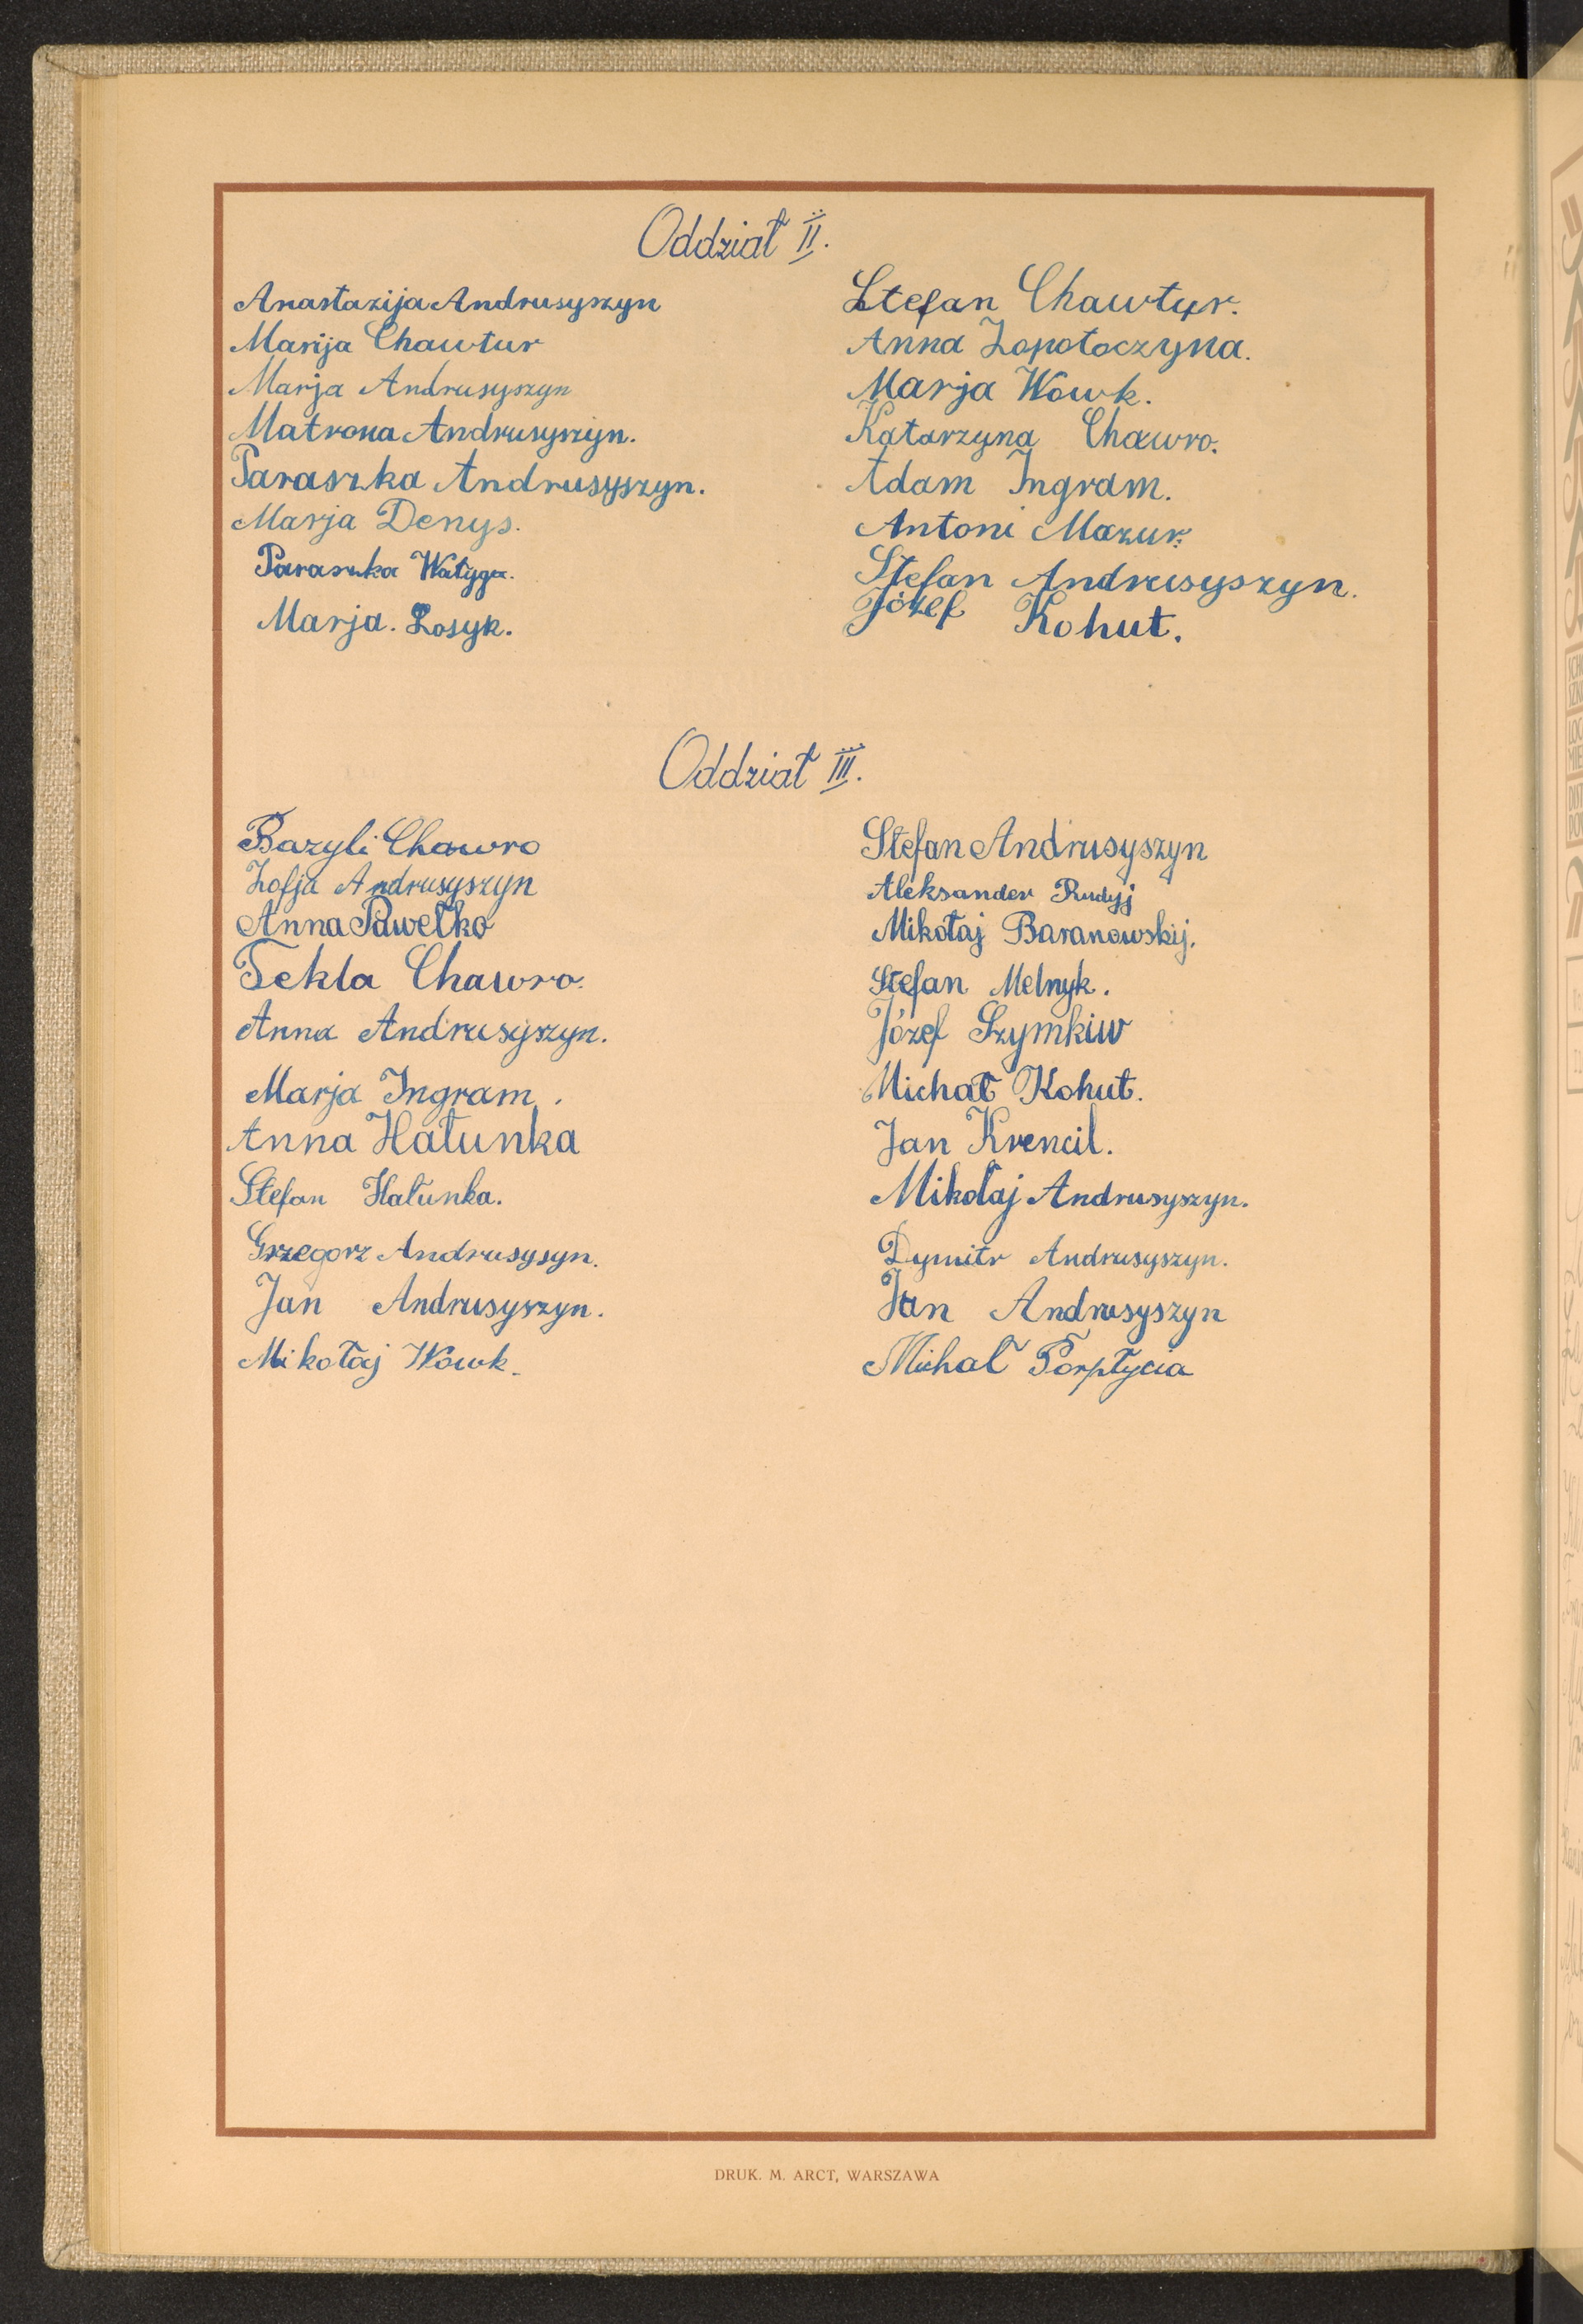 Oddział II.
Anastazija Andrusyszyn
Marija Chawtur
Marja Andrusyszyn
Matrona Andrusyszyn.
Paraszka Andrusyszyn.
Marja Denys.
Paraszka Watyga.
Marja. Łosyk.
Stefan Chawtyr.
Anna Zopotoczyna.
Marja Wowk.
Katarzyna Chawro.
Adam Ingram.
Antoni Mazur.
Stefan Andrusyszyn.
Józef Kohut.
Oddział III.
Bazyli Chawro
Zofja Andrusyszyn
Anna Pawełko
Tekla Chawro.
Anna Andrusyszyn.
Marja Ingram.
Anna Hałunka
Stefan Hałunka.
Grzegorz Andrusysyn.
Jan Andrusyszyn.
Mikołaj Wowk.
Stefan Andrusyszyn
Aleksander Rudyj
Mikołaj Baranowskij.
Stefan Melnyk.
Józef Szymkiw
Michał Kohut.
Jan Krencil.
Mikołaj Andrusyszyn.
Dymitr Andrusyszyn.
Jan Andrusyszyn
Michał Porptycia
DRUK. M. ARCT, WARSZAWA